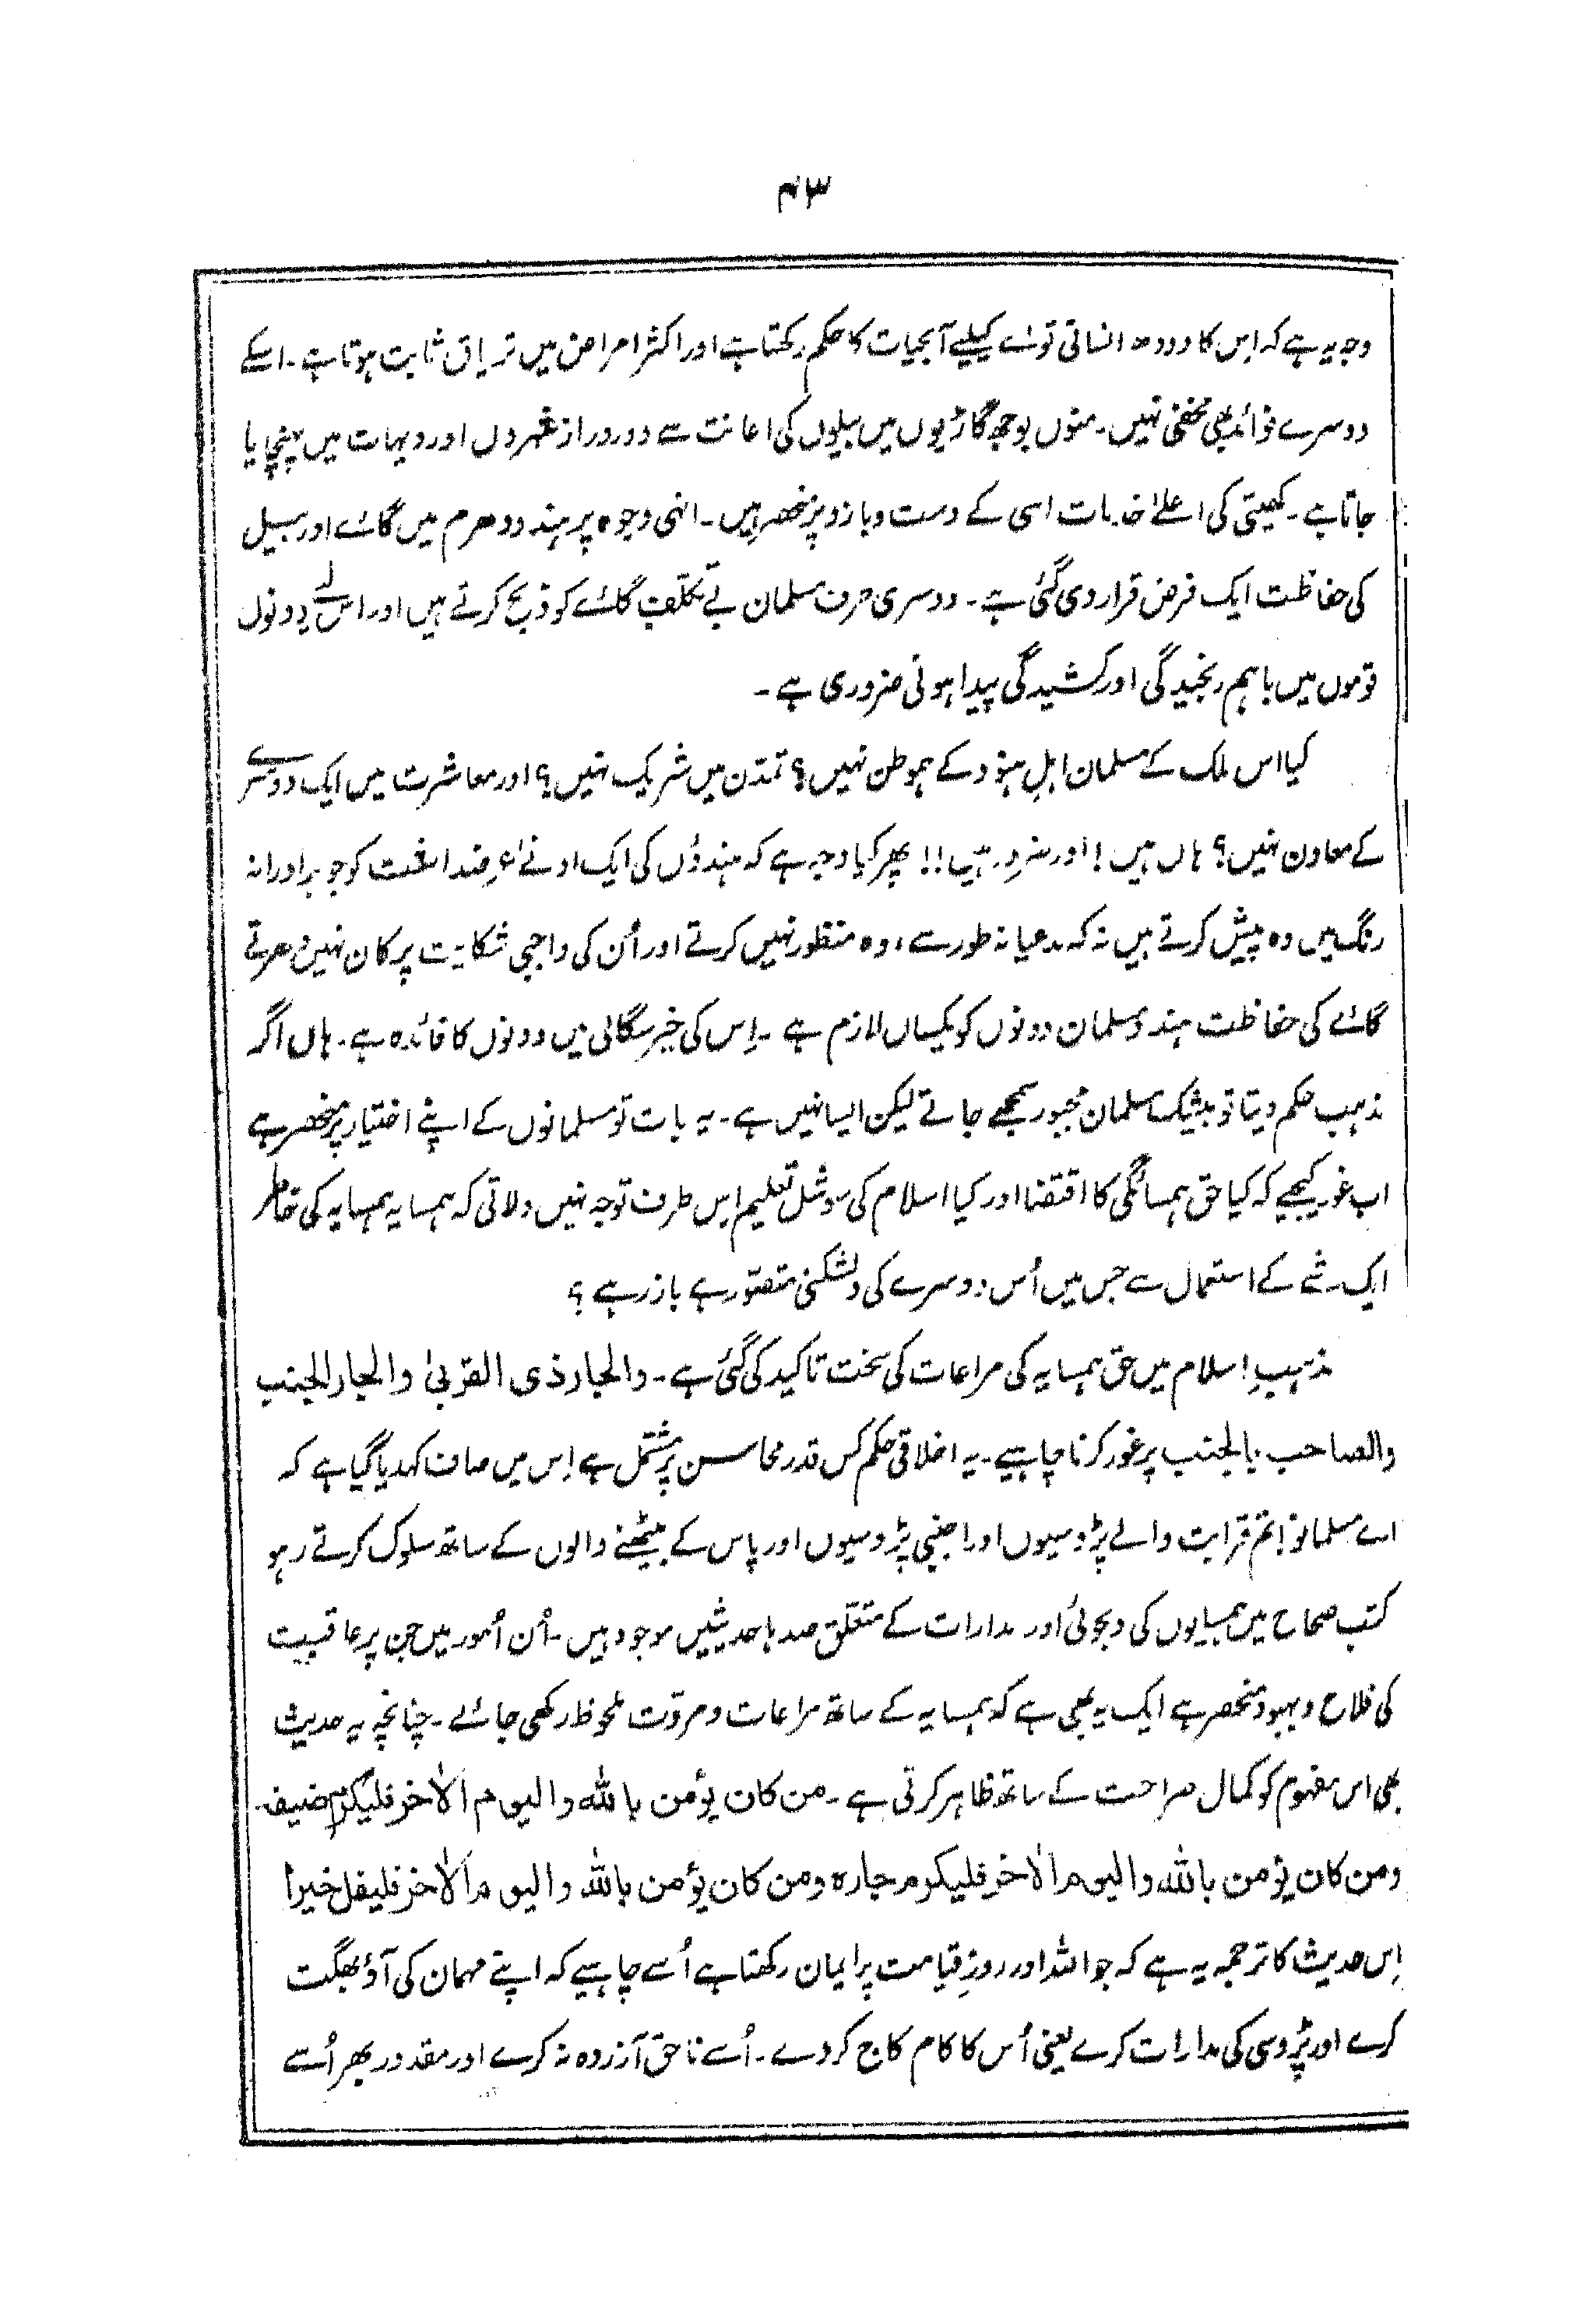 ۴۳
وجہ یہ ہے کہ اِس کا دودھ انسانی قوٰے کیلیے آبجیات کا حکم رکھتا ہے اور اکثر امراض میں تریاق ثابت ہوتا ہے۔ اسکے
دوسرے فوائد بھی مخفی نہیں۔ منوں بوجھ گاڑیوں میں بیلوں کی اعانت سے دور دراز شہروں اور دیہات میں پہنچایا
جاتا ہے۔ کھیتی کی اعلےٰ خدمات اسی کے دست و بازو پر منحصر ہیں۔ انہی وجوہ پر ہندو دھرم میں گائے اور بیل
کی حفاظت ایک فرض قرار دی گئی ہے۔ دوسری طرف مسلمان بے تکلف گائے کو ذبح کرتے ہیں اور اس لیے دونوں
قوموں میں باہم رنجیدگی اور کشیدگی پیدا ہونی ضروری ہے۔
کیا اس ملک کے مسلمان اہلِ ہنود کے ہموطن نہیں؟ تمدّن میں شریک نہیں؟ اور معاشرت میں ایک دوسرے
کے معاون نہیں؟ ہاں ہیں! اور ضرور ہیں!! پھر کیا وجہ ہے کہ ہندوؤں کی ایک ادنےٰ عرضداشت کو جو برادرانہ
رنگ میں وہ پیش کرتے ہیں نہ کہ مدعیانہ طور سے، وہ منظور نہیں کرتے اور اُن کی واجبی شکایت پر کان نہیں دھرتے
گائے کی حفاظت ہندو مسلمان دونوں کو یکساں لازم ہے ۔ اِس کی خیر سگالی میں دونوں کا فائدہ ہے۔ ہاں اگر
مذہب حکم دیتا تو بیشک مسلمان مجبور سمجھے جاتے لیکن ایسا نہیں ہے۔ یہ بات تو مسلمانوں کے اپنے اختیار پر منحصر ہے
اب غور کیجیے کہ کیا حق ہمسائگی کا اقتضا اور کیا اسلام کی سوشل تعلیم اِس طرف توجہ نہیں دلاتی کہ ہمسایہ ہمسایہ کی خاطر
ایک شے کے استعمال سے جس میں اُس دوسرے کی دلشکنی متصوّر ہے باز رہے؟
مذہبِ اسلام میں حق ہمسایہ کی مراعات کی سخت تاکید کی گئی ہے۔ والجار ذی القربیٰ والجار الجنب
والصاحب بالجنب پر غور کرنا چاہیے۔ یہ اخلاقی حکم کس قدر محاسن پر مشتمل ہے اِس میں صاف کہدیا گیا ہے کہ
اے مسلمانو! تم قرابت والے پڑوسیوں اور اجنبی پڑوسیوں اور پاس کے بیٹھنے والوں کے ساتھ سلوک کرتے رہو
کتب صحاح میں ہمسایوں کی دلجوئی اور مدارات کے متعلق صدہا حدیثیں موجود ہیں۔ اُن اُمور میں جن پر عاقبت
کی فلاح و بہبود منحصر ہے ایک یہ بھی ہے کہ ہمسایہ کے ساتھ مراعات و مروّت ملحوظ رکھی جائے۔ چنانچہ یہ حدیث
بھی اس مفہوم کو کمال صراحت کے ساتھ ظاہر کرتی ہے۔ من کان یؤمن باللہ والیوم الاٰخر فلیکرم ضیفہ
ومن کان یؤمن باللہ والیوم الاٰخر فلیکرم جارہ ومن کان یؤمن باللہ والیوم الاٰخر فلیقل خیراً
اِس حدیث کا ترجمہ یہ ہے کہ جو اللہ اور روزِ قیامت پر ایمان رکھتا ہے اُسے چاہیے کہ اپنے مہمان کی آؤ بھگت
کرے اور پڑوسی کی مدارات کرے یعنی اُس کا کام کاج کر دے۔ اُسے ناحق آزردہ نہ کرے اور مقدور بھر اُسے